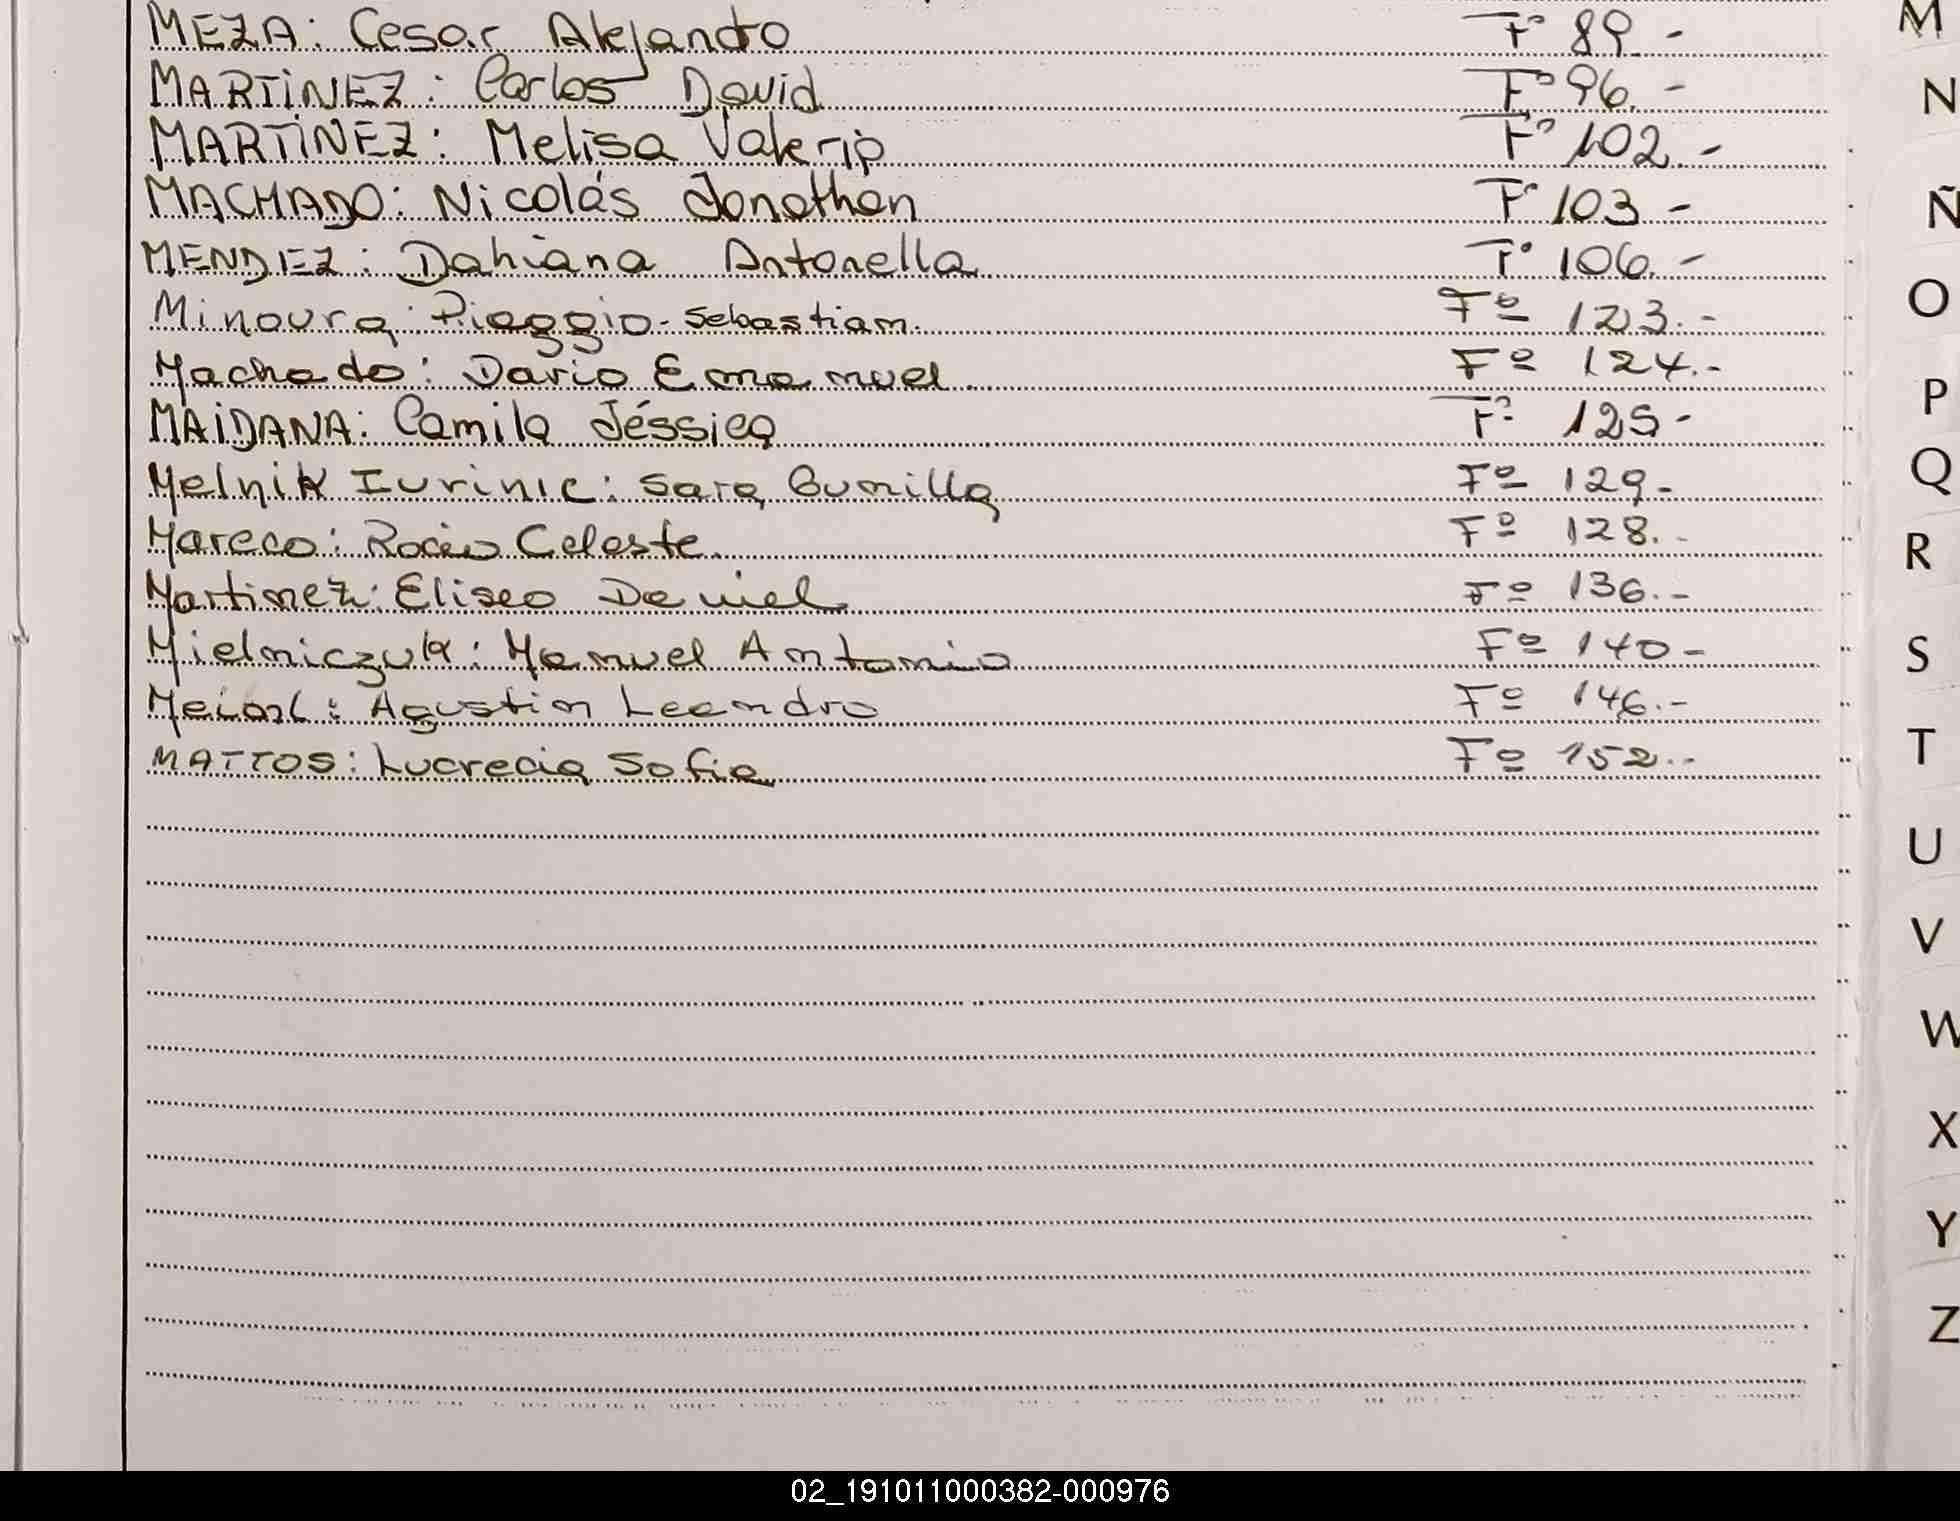 MEZA: Cesar Alejandro F° 89.-
MARTÍNEZ: Carlos David F° 96.-
MARTÍNEZ: Melisa Valeria F° 102.-
MACHADO: Nicolás Jonathan F° 103-
MENDEZ: Dahiana Antonella F° 106.-
Minoura: Piaggio-Sebastian. Fº 123.-
Machado: Dario Emanuel Fº 124.-
MAIDANA: Camila Jéssica F° 125-
Melnik Iurinic: Sara Fº 129.-
Mareco: Rocio Celeste. Fº 128.-
Martinez: Eliseo Daniel Fº 136.-
Mielniczuk: Manuel Antonio Fº 140-
Agustin Leandro Fº 146.-
MATTOS: Lucrecia Sofia Fº 152.-
M
N
Ñ
O
P
Q
R
S
T
U
V
W
X
Y
Z
02_191011000382-000976